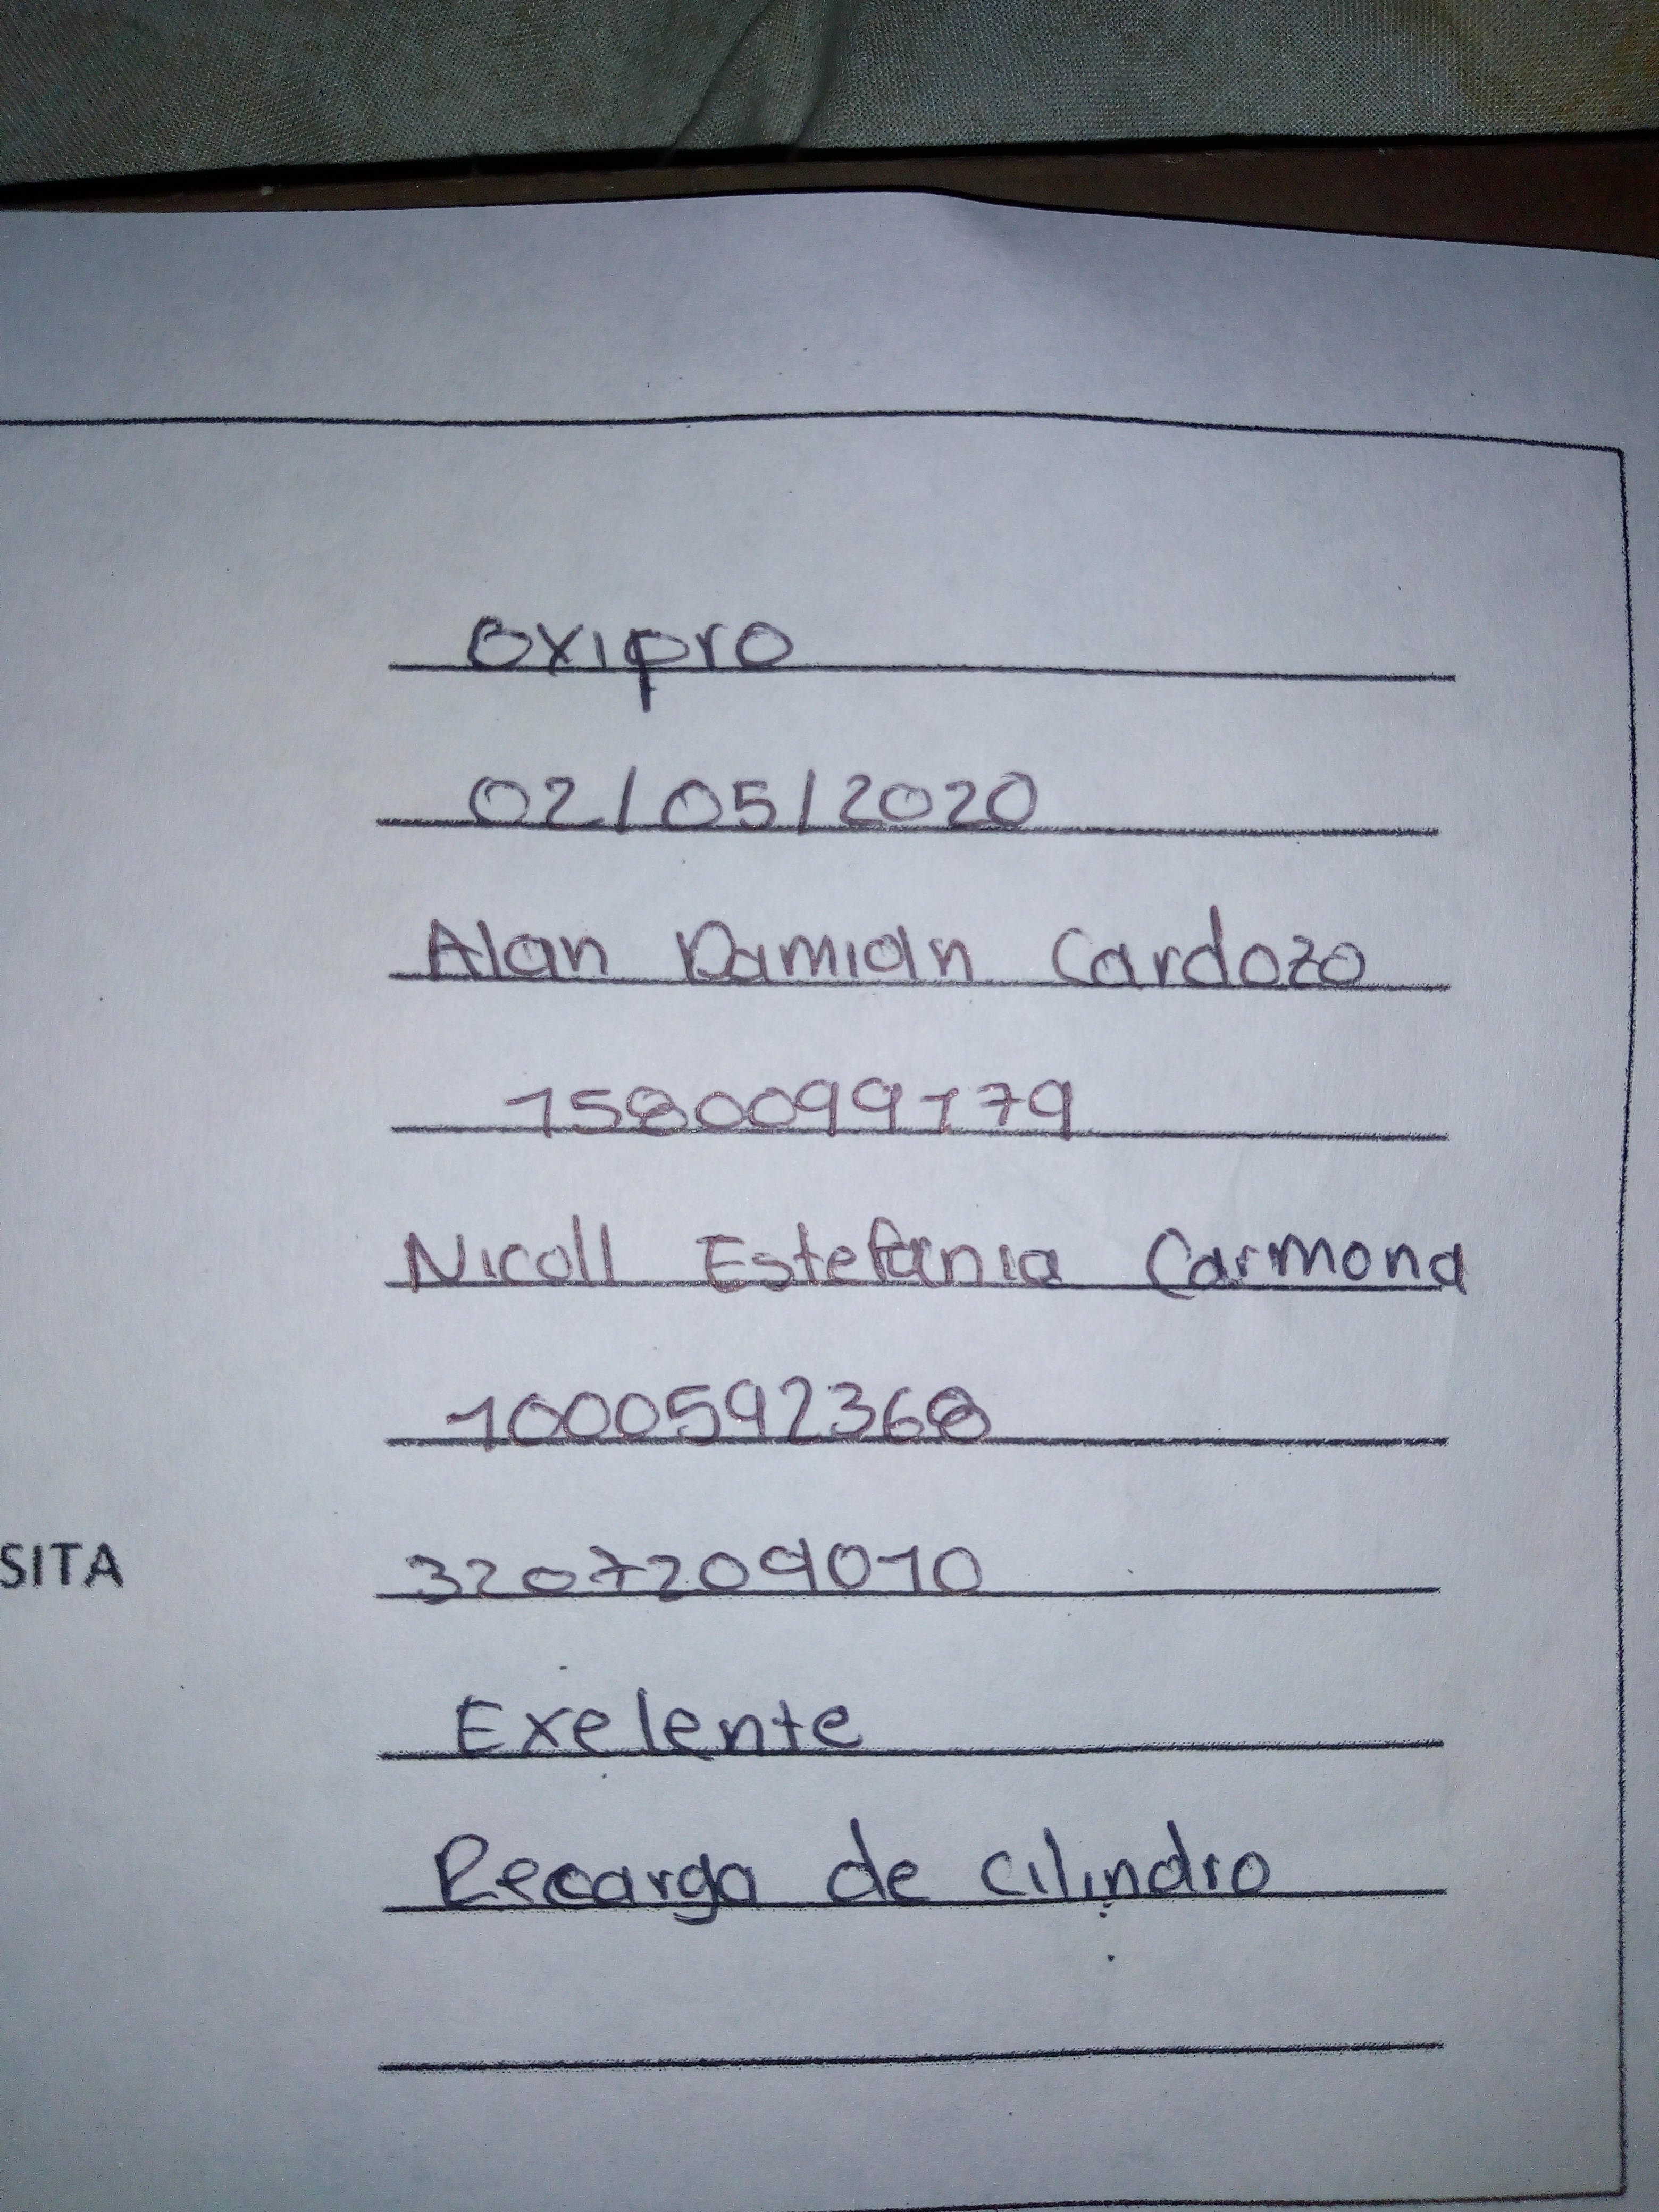 Oxipro
02/05/2020
Alan Damian Cardozo
1580099179
Nicoll Estefania Carmona
1000592368
SITA 3207209010
Exelente
Recarga de cilindro